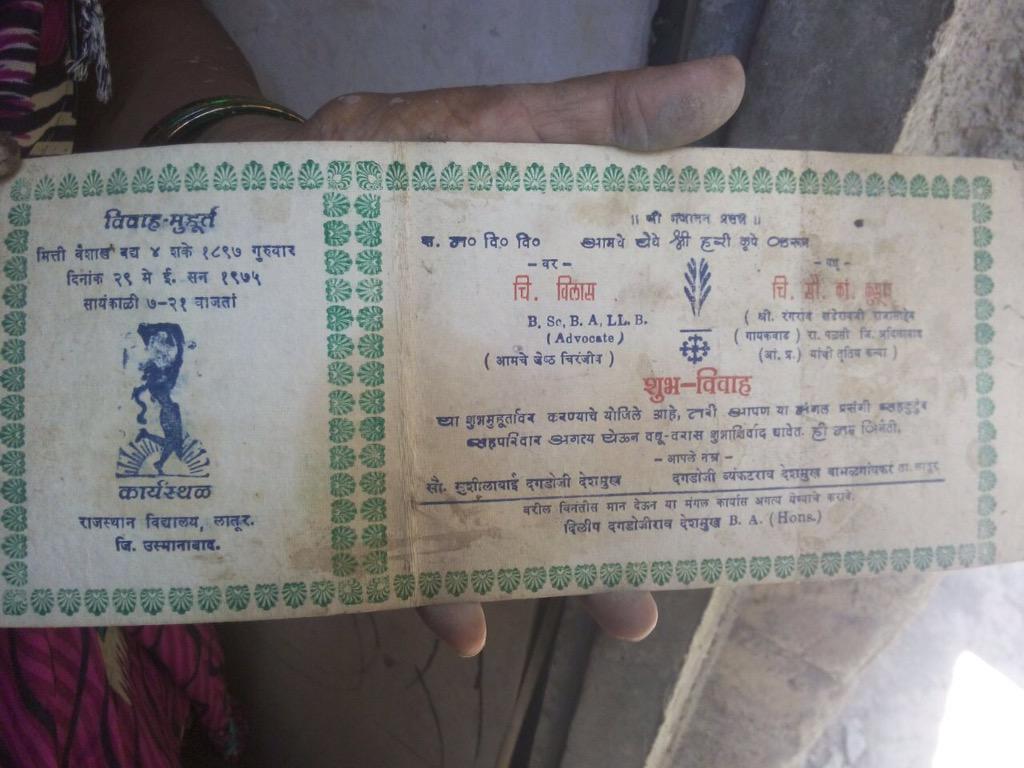 विवाह-मुहूर्त
मित्ती वैशाख बद्य ४ शके १८९७ गुरुवार
दिनांक २९ मे ई. सन १९७५
सायंकाळी ७-२१ वाजतां
कार्यस्थळ
राजस्थान विद्यालय, लातूर.
जि. उस्मानाबाद.
॥ श्री गजानन प्रसन्न ॥
स. न० वि० वि० आमचे येथे श्री कृपे करून
- वर -
चि. विलास
B. Sc, B. A, LL. B.
( Advocate )
( आमचे जेष्ठ चिरंजीव )
- वधू -
चि. सौ. कां. कुसूम
( श्री. रंगराव
( गायकवाड ) रा. जि. अदिलाबाद
(आं. प्र.) यांची तृतिय कन्या )
शुभ-विवाह
ह्या शुभमुहूर्तावर करण्याचे योजिले आहे, तरी आपण या मंगल प्रसंगी सहकुटुंब
सहपरिवार अगत्य येऊन वधू-वरास शुभाशिर्वाद द्यावेत. ही नम्र विनंती,
- आपले नम्र -
सौ. सुशीलाबाई दगडोजी देशमुख दगडोजी व्यंकटराव देशमुख बाभळगांवकर ता. लातूर
वरील विनंतीस मान देऊन या मंगल कार्यास अगत्य येण्याचे करावे.
दिलीप दगडोजीराव देशमुख B. A. (Hons.)